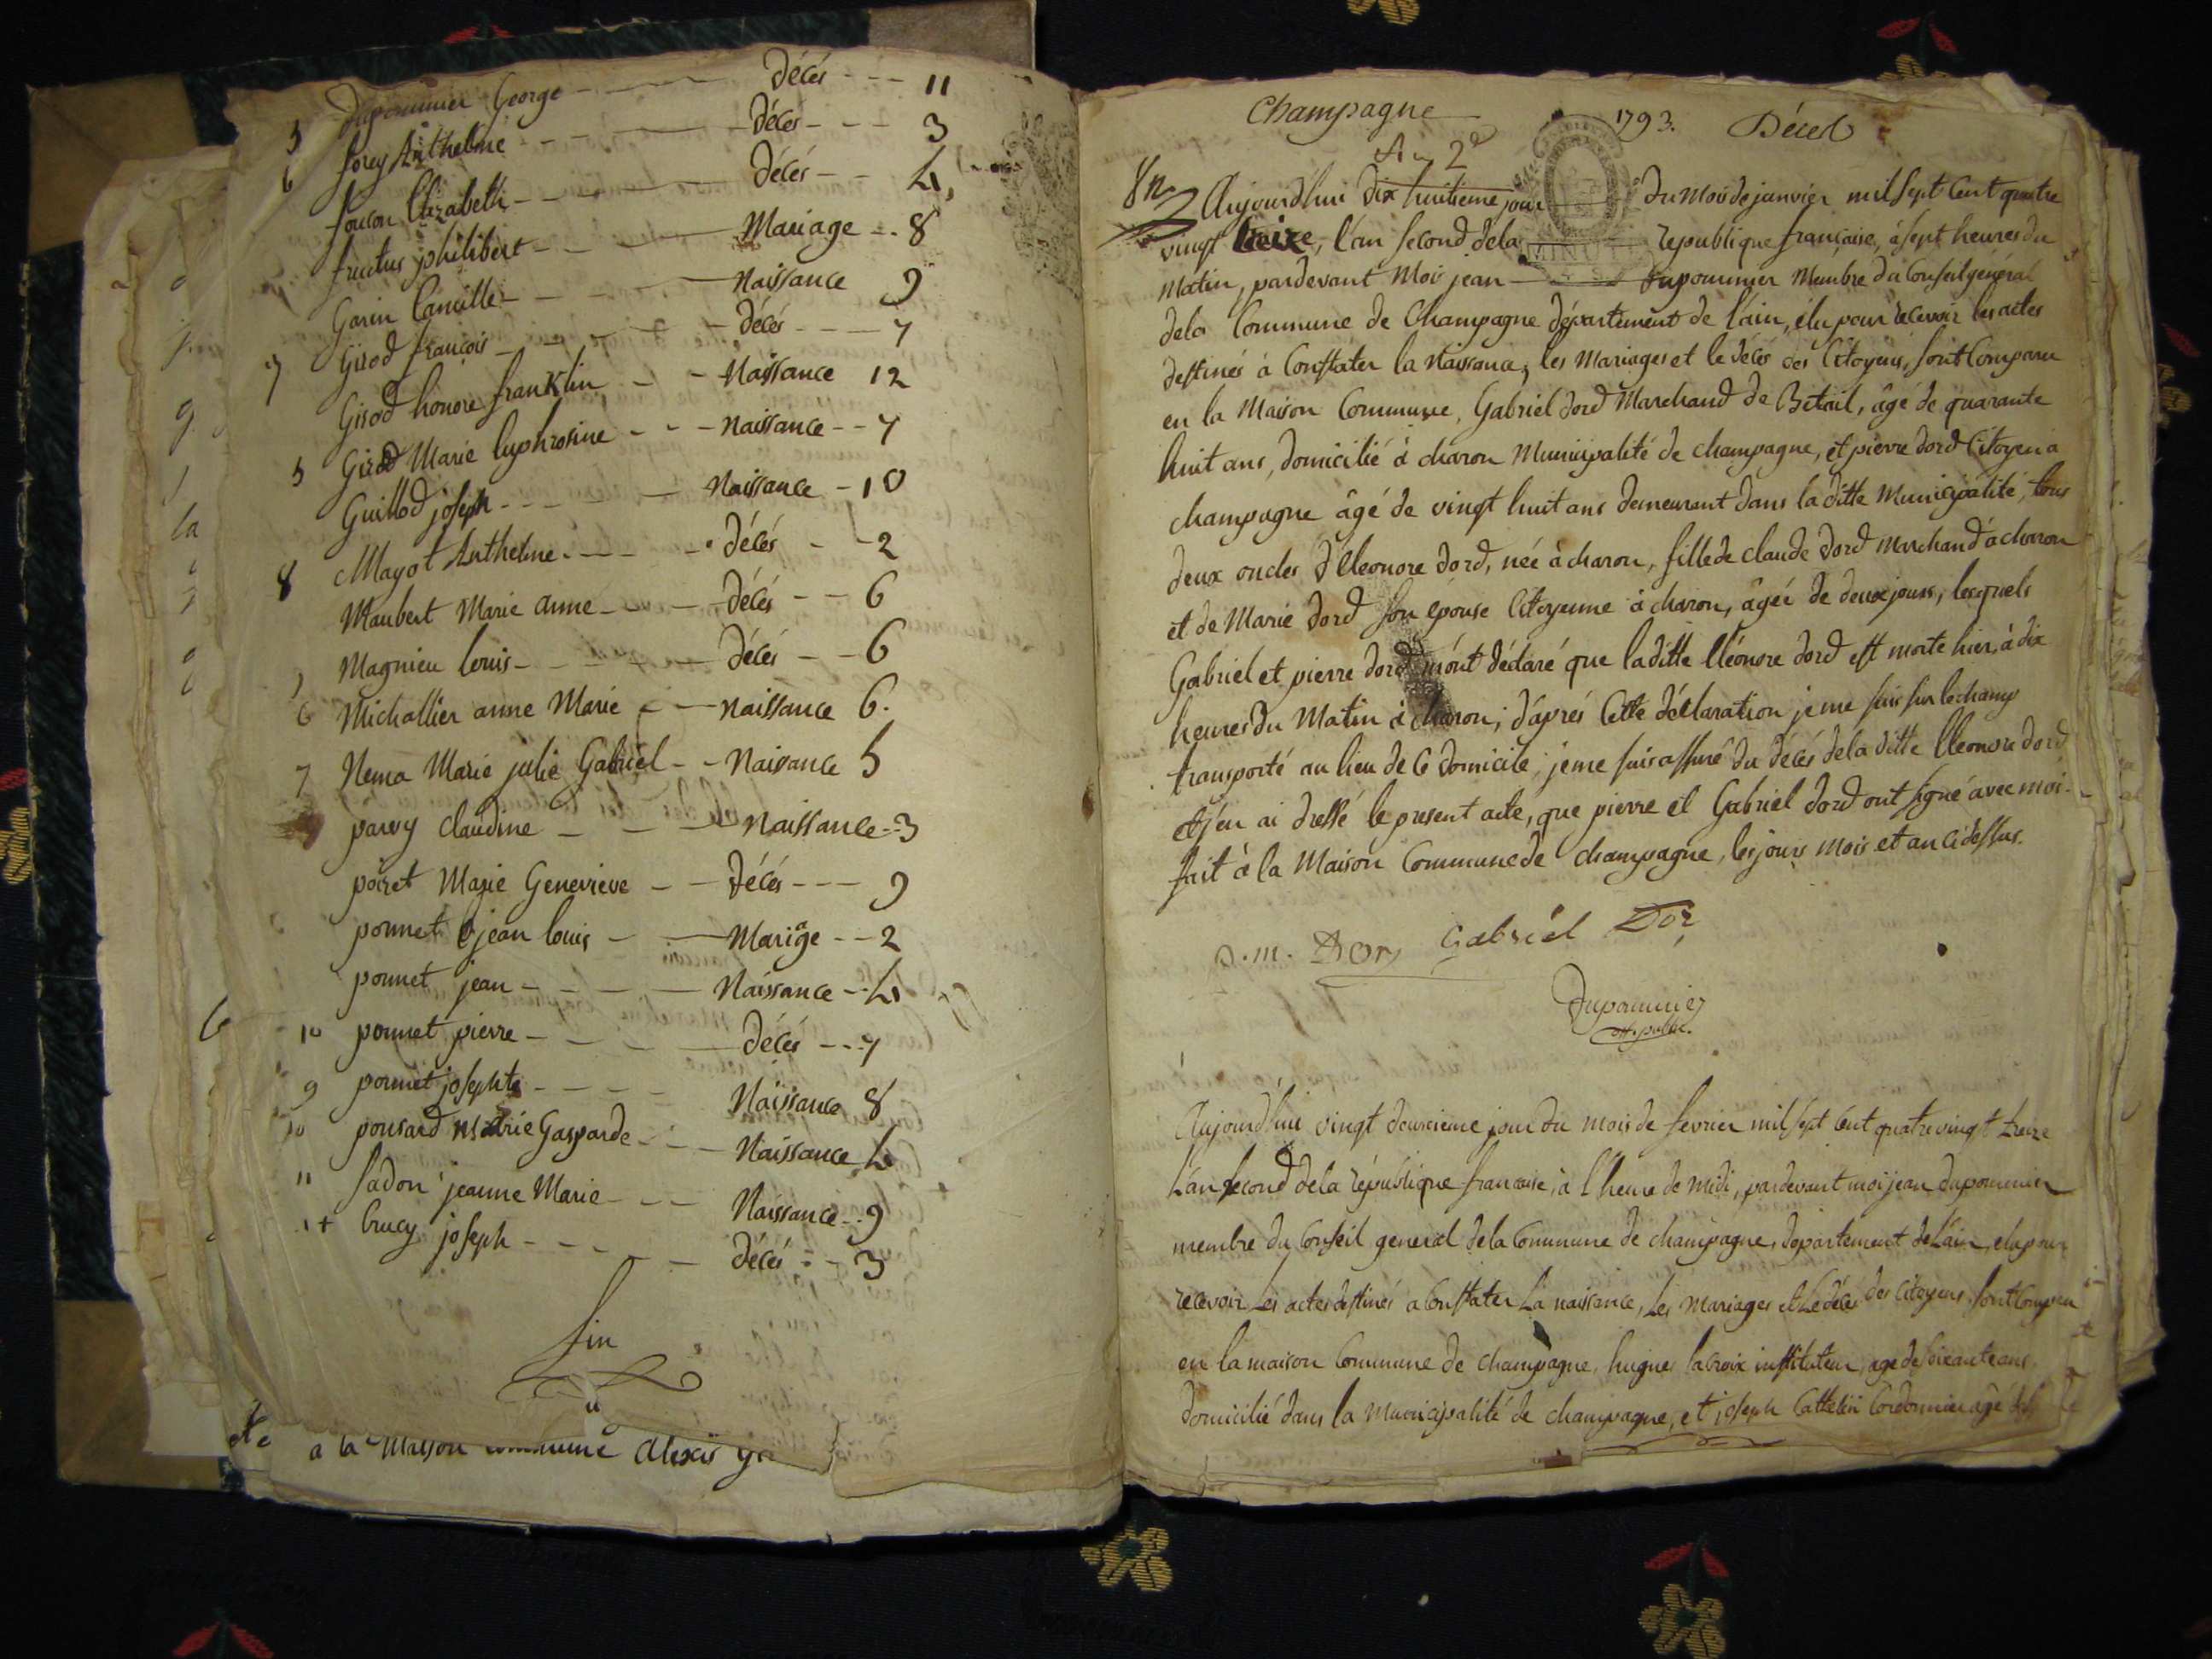 Dupommier George - - - Décés - - - 11
5 forey Anthelme - - - Décés - - - 3
6 foucon Elizabeth - - - Décés - - 4
fructus philibert - - - Mariage - - 8
Garin Camille - - - Naissance 9
Girod françois - - - Décés - - - 7
7 Girod honoré franklin - - Naissance 12
5 Girod Marie Euphrosine - - - Naissance - - 7
Guillod joseph - - - Naissance - 10
8 Mayot Anthelme - - - Décés - - 2
Maubert Marie anne - - - Décés - - 6
Magnieu Louis - - - Décés - - 6
6 Michallier anne Marie - - Naissance 6.
7 Nema Marie julie Gabriel - - Naissance 5
parvy claudine - - - Naissance - - 3
poiret Marie Genevieve - - Décés - - - 9
ponnet jean louis - - Mariage - - 2
ponnet jean - - - - Naissance - - 4
10 ponnet pierre - - - - Décés - - - 7
9 ponnet josephte - - - - Naissance 8
10 ponsard Marie Gasparde - - - Naissance 4
11 Sadon jeanne Marie - - - Naissance - - 9
Crucy joseph - - - - Décés - - 3
fin
a la Maison commune alexis
Champagne 1793. Décès
An 2e
Aujourd'hui dix huitieme jour du Mois de janvier mil sept Cent quatre
vingt treize, l'an second de la République française, à sept heures du
matin, pardevant Moi jean Dupommier Membre du Conseil général
dela Commune de Champagne département de l'ain, élu pour recevoir les actes
destinés à Constater la Naissance, les Mariages et le décés des Citoyens, sont Comparu
en la Maison Commune, Gabriel dord Marchand de Bétail, âgé de quarante
huit ans, domicilié à charon Municipalité de champagne, et pierre dord Citoyen a
champagne âgé de vingt huit ans demeurant dans la ditte Municipalité, tous
deux oncles d'Eleonore dord, née à charon, fille de claude dord marchand à charon
et de Marie dord son épouse Citoyenne à charon, âgée de deux jours, lesquels
Gabriel et pierre dord m'ont déclaré que laditte Eléonore dord est morte hier, à dix
heures du Matin à charon; d'aprés Cette déclaration je me suis sur lechamp
transporté au lieu de Ce domicile, je me suis assuré du décés dela ditte Eleonore dord
et j'en ai dressé le present acte, que pierre et Gabriel dord ont signé avec moi.
fait à la Maison Commune de champagne, les jours mois et an cidessus.
Gabriél Dor
Dupommier
off. public.
Aujourd'hui vingt deuxieme jour du mois de fevrier mil sept cent quatre vingt treize
L'an second de la république francaise, à l'heure de Midi, pardevant moi jean dupommier
membre du Conseil general dela Commune de champagne, département de L'ain, elu pour
recevoir Les actes destinés a Constater La naissance, Les Mariages et Le décés des Citoyens, sont Comparu
en la maison Commune de champagne, hugues lacroix instituteur, agé de soixante ans
domicilié dans la Municipalité de champagne, et joseph Cattelin Cordonnier agé de